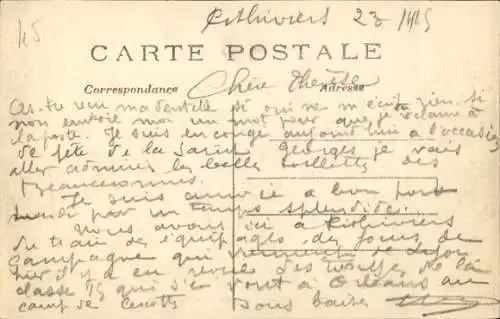 45
Pithiviers 23 1915
CARTE POSTALE
Correspondance Adresse
Chère Thérèse
As-tu reçu ma dentelle si oui ne m'écrit rien. Si
non envoie moi un mot pour que je réclame à
la poste. Je suis en congé aujourd'hui à l'occasion
de fête de la Saint Georges je vais
aller admirer les belles toilettes des
Beauceronnes.
Je suis arrivée a bon port
par un temps splendide.
Nous avons ici à Pithiviers
du train des équipages des jours de
campagne qui viennent de Lyon
hier il y a eu revue des troupes de la
classe 15 qui s'en vont à Orléans au
camp de Cercottes bons baisers